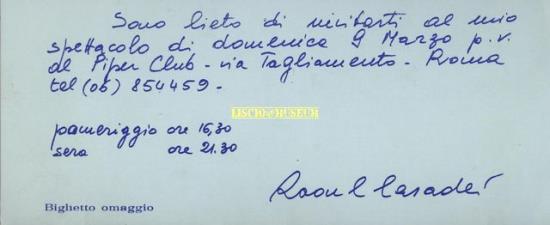 Sono lieto di invitarti al mio
spettacolo di domenica 9 Marzo p.v.
al Piper Club - via Tagliamento - Roma
tel (06) 854459 -
LISCIO@MUSEUM
pomeriggio ore 16,30
sera ore 21.30
Raoul Casadei
Bighetto omaggio